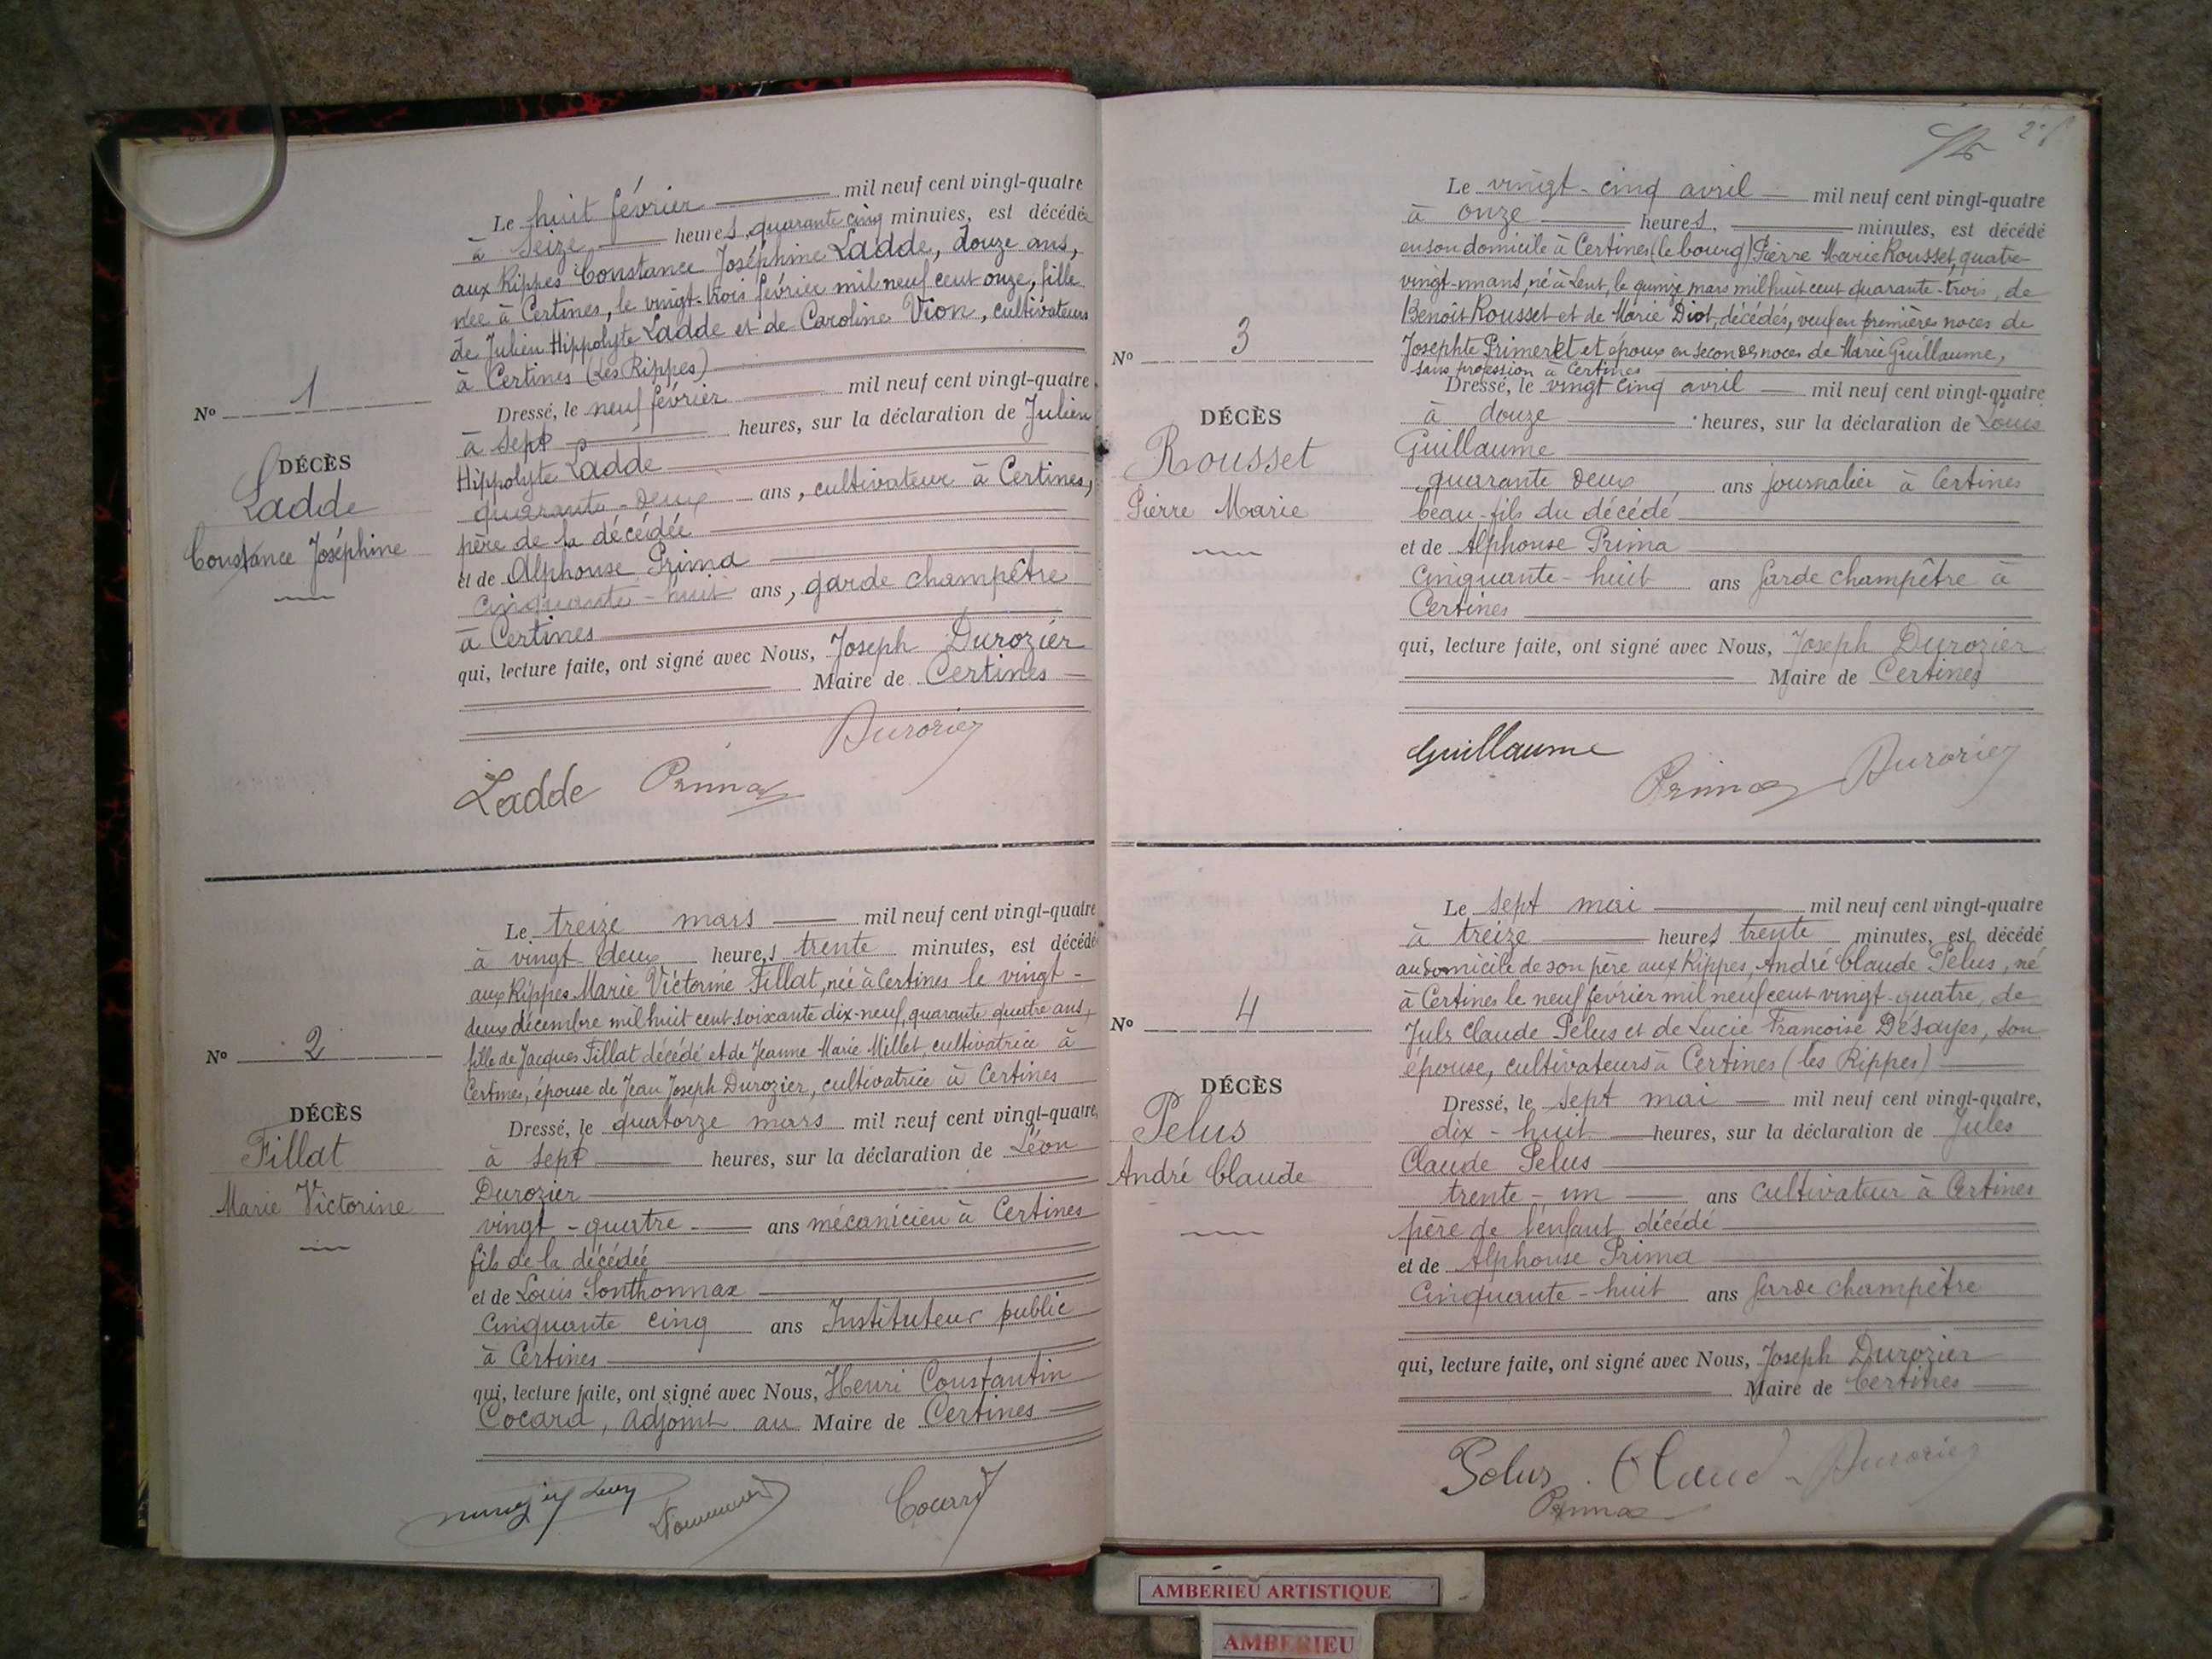 Le huit février mil neuf cent vingt-quatre
à seize heures, quarante cinq minutes, est décédée
aux Rippes Constance Joséphine Ladde, douze ans,
née à Certines, le vingt-trois février mil neuf cent onze, fille
de Julien Hippolyte Ladde et de Caroline Vion, cultivateurs
à Certines (Les Rippes)
Nº 1
DÉCÈS
Ladde
Constance Joséphine
Dressé, le neuf février mil neuf cent vingt-quatre
à sept heures, sur la déclaration de Julien
Hippolyte Ladde
quarante-deux ans, cultivateur à Certines,
père de la décédée
et de Alphonse Prima
cinquante-huit ans, garde champêtre
à Certines
qui, lecture faite, ont signé avec Nous, Joseph Durozier
Maire de Certines
Durozier
Ladde Prima
Le treize mars mil neuf cent vingt-quatre
à vingt-deux heures trente minutes, est décédé
aux Rippes Marie Victorine Fillat, née à Certines le vingt-
deux décembre mil huit cent soixante dix-neuf, quarante quatre ans,
fille de Jacques Fillat décédé et de Jeanne Marie Millet, cultivatrice à
Certines, épouse de Jean Joseph Durozier, cultivatrice à Certines
Nº 2
DÉCÈS
Fillat
Marie Victorine
Dressé, le quatorze mars mil neuf cent vingt-quatre,
à sept heures, sur la déclaration de Léon
Durozier
vingt-quatre ans mécanicien à Certines
fils de la décédée
et de Louis Sonthonnax
cinquante cinq ans Instituteur public
à Certines
qui, lecture faite, ont signé avec Nous, Henri Constantin
Cocard, adjoint au Maire de Certines
Cocard
Le vingt-cinq avril mil neuf cent vingt-quatre
à onze heures, minutes, est décédé
en son domicile à Certines (le bourg) Pierre Marie Rousset, quatre-
vingt-un ans, né à Lent, le quinze mars mil huit cent quarante-trois, de
Benoît Rousset et de Marie Diot, décédés, veuf en premières noces de
Josephte et époux en secondes noces de Marie Guillaume,
sans profession à Certines
Nº 3
DÉCÈS
Rousset
Pierre Marie
Dressé, le vingt cinq avril mil neuf cent vingt-quatre
à douze heures, sur la déclaration de Louis
Guillaume
quarante deux ans journalier à Certines
beau-fils du décédé
et de Alphonse Prima
cinquante-huit ans garde champêtre à
Certines
qui, lecture faite, ont signé avec Nous, Joseph Durozier
Maire de Certines
Guillaume
Prima Durozier
Le sept mai mil neuf cent vingt-quatre
à treize heures trente minutes, est décédé
au domicile de son père aux Rippes, André Claude Pelus, né
à Certines le neuf février mil neuf cent vingt-quatre, de
Juls Claude Pelus et de Lucie Françoise Désayes, son
épouse, cultivateurs à Certines (les Rippes)
Nº 4
DÉCÈS
Pelus
André Claude
Dressé, le sept mai mil neuf cent vingt-quatre,
dix-huit heures, sur la déclaration de Jules
Claude Pelus
trente-un ans cultivateur à Certines
père de l'enfant décédé
et de Alphonse Prima
cinquante-huit ans garde champêtre
qui, lecture faite, ont signé avec Nous, Joseph Durozier
Maire de Certines
Pelus Claud Durozier
Prima
AMBERIEU ARTISTIQUE
AMBERIEU